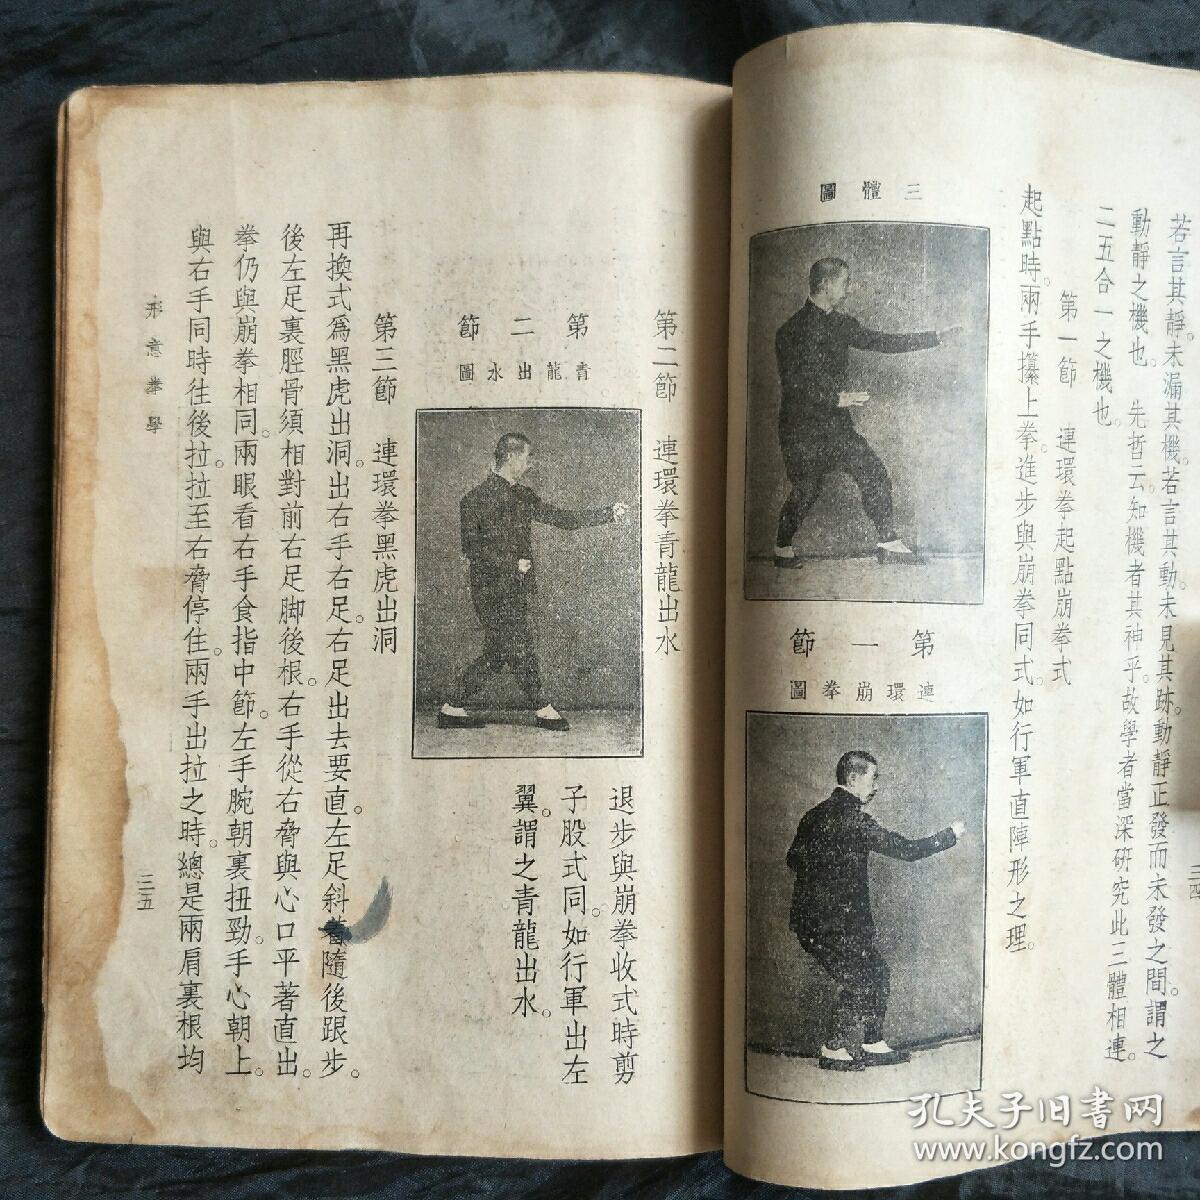 若言其靜。未漏其機。若言其動。未見其跡。動靜正發而未發之間。謂之
動靜之機也。先哲云知機者其神乎。故學者當深研究此三體相連。
二五合一之機也。
第一節　連環拳起點崩拳式
起點時。兩手攥上拳。進步與崩拳同式。如行軍直陣形之理。
三體圖
第一節
連環崩拳圖
三四
第二節　連環拳青龍出水
退步與崩拳收式時剪
子股式同。如行軍出左
翼。謂之青龍出水。
第二節
青龍出水圖
第三節　連環拳黑虎出洞
再換式爲黑虎出洞。出右手右足。右足出去要直。左足斜着隨後跟步。
後左足裏脛骨須相對前右足脚後根。右手從右脅與心口平著直出。
拳仍與崩拳相同。兩眼看右手食指中節。左手腕朝裏扭勁。手心朝上。
與右手同時往後拉。拉至右脅停住。兩手出拉之時。總是兩肩裏根均
形意拳學
三五
孔夫子旧书网
www.kongfz.com